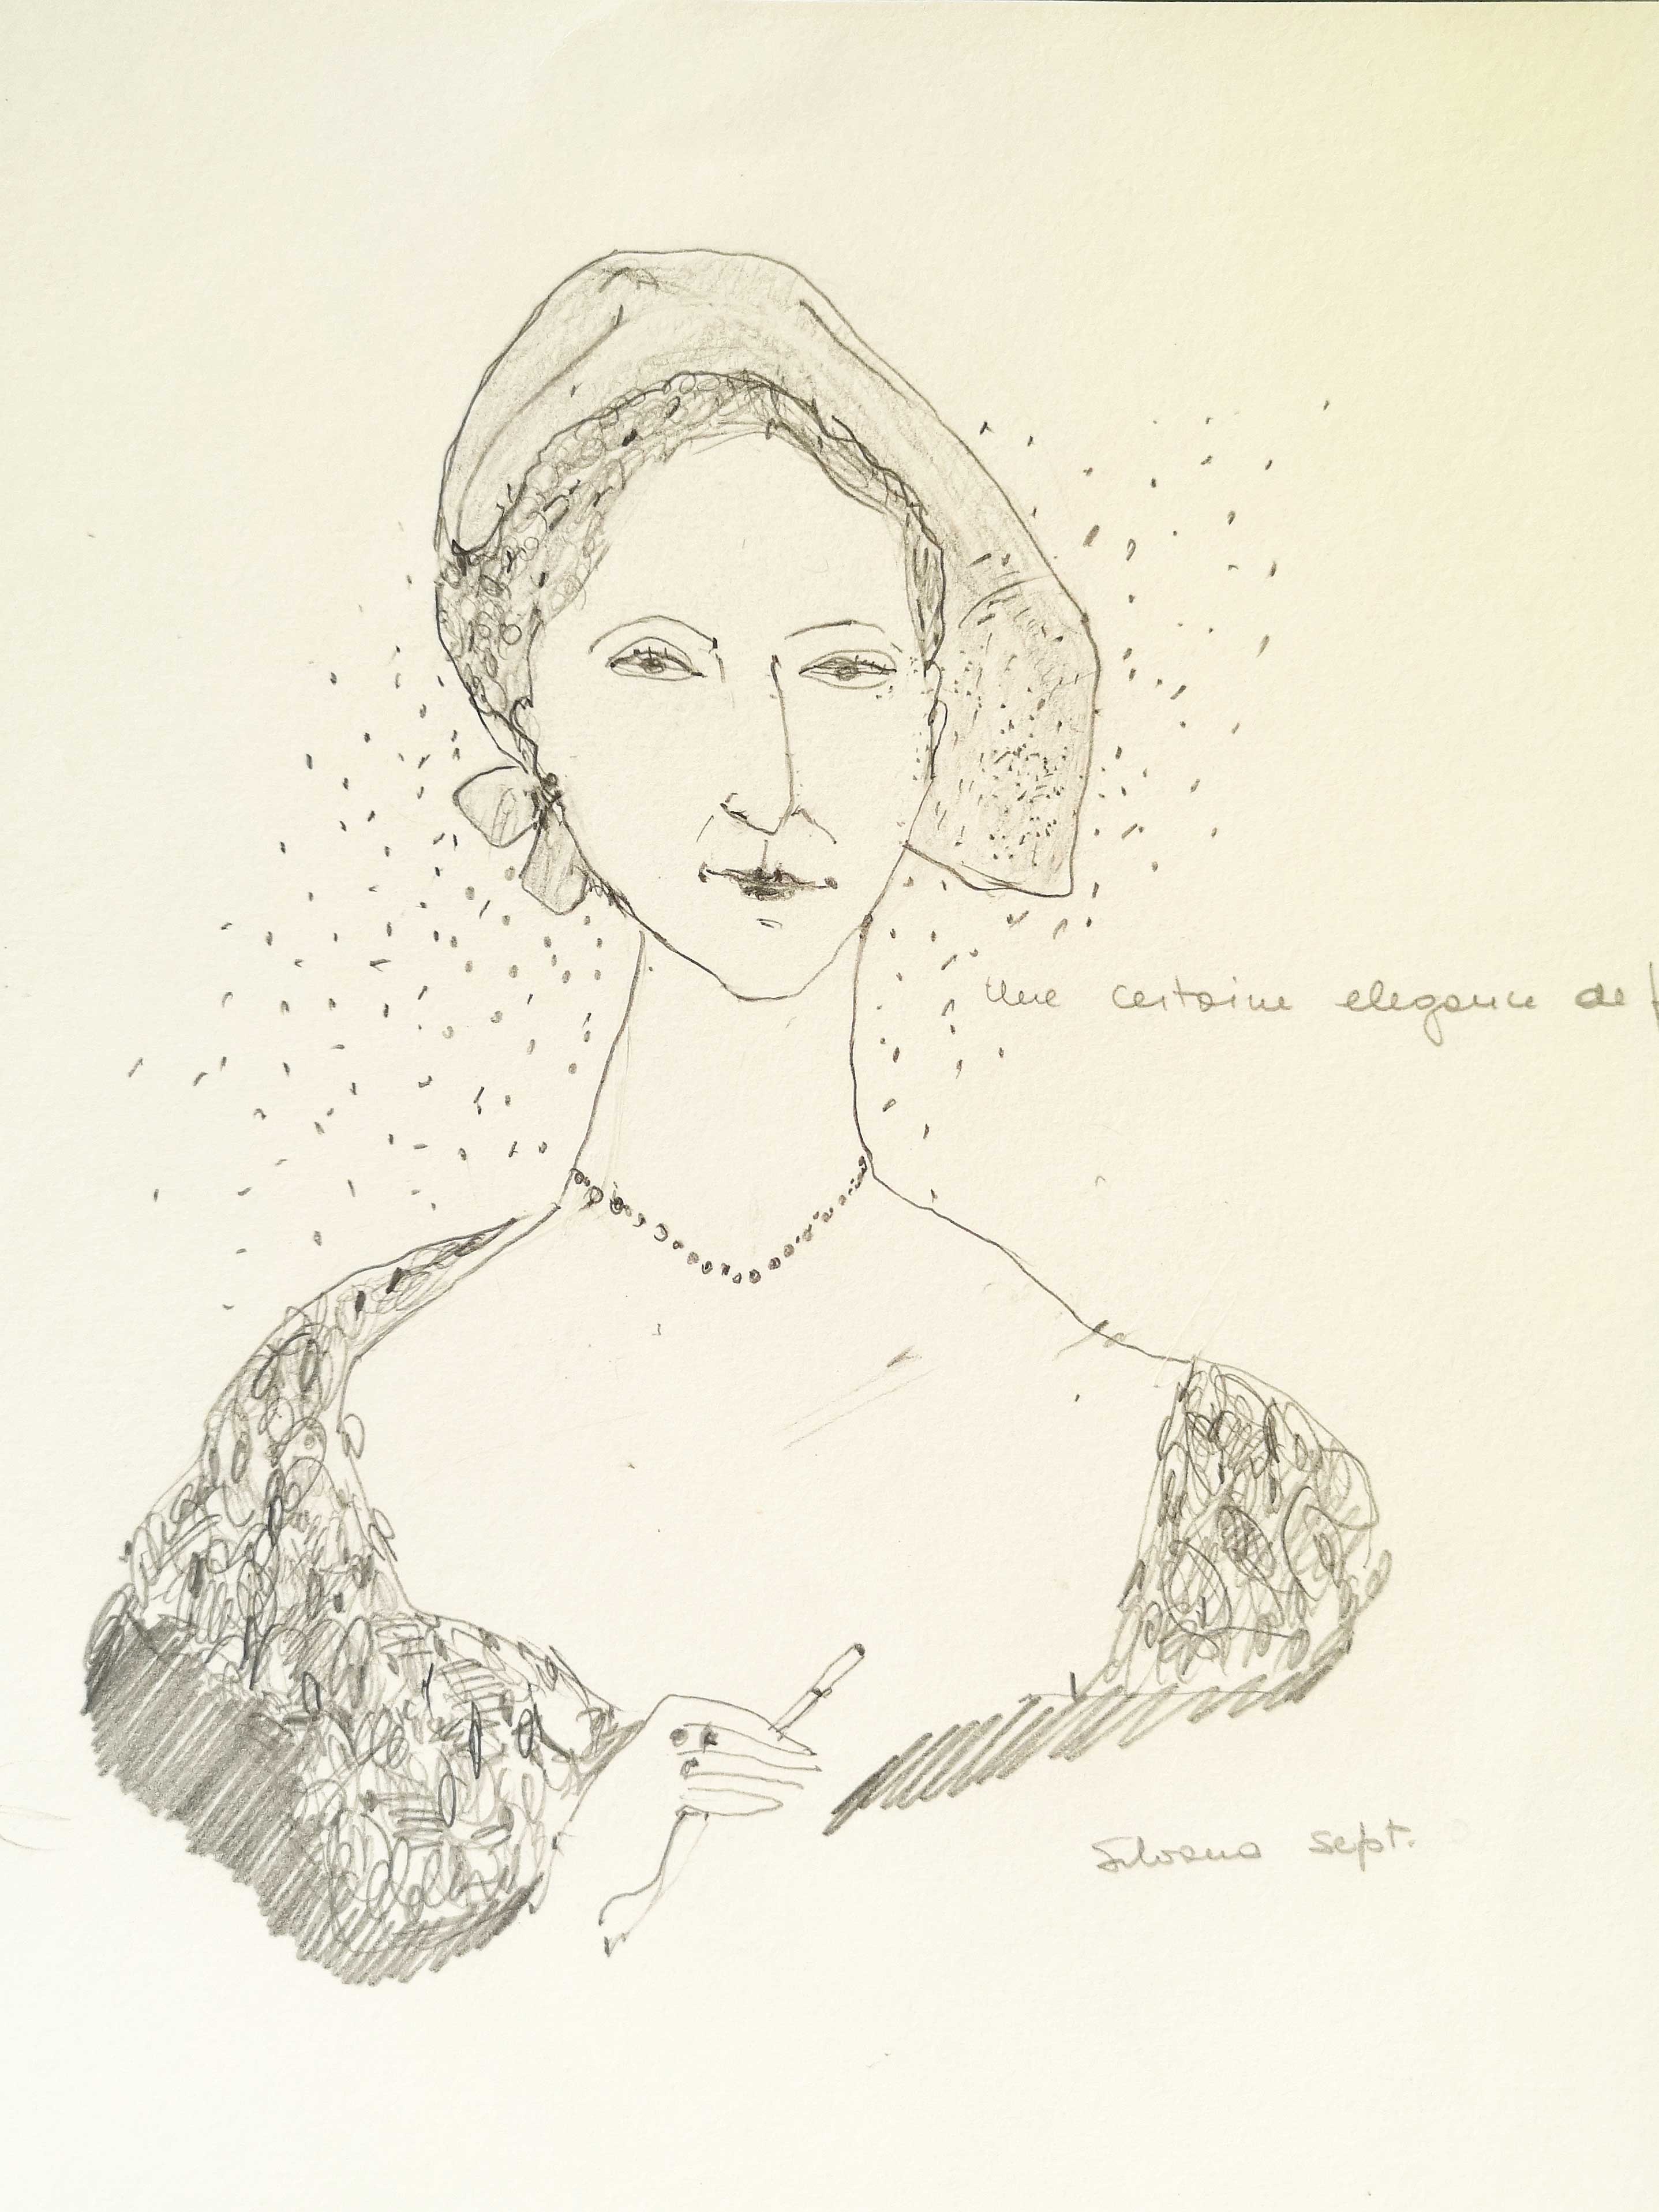 Une certaine elegance de
Silvana sept.